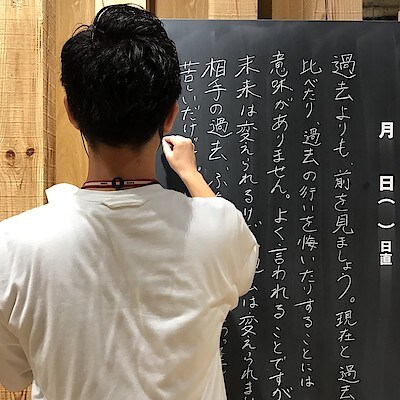 月 日( )日直
過去よりも、前を見ましょう。現在と過去
比べたり、過去の行いを悔いたりすることには
意味がありません。よく言われることですが
未来は変えられるけ は変えられま
相手の過去、ふ
苦しいだけ